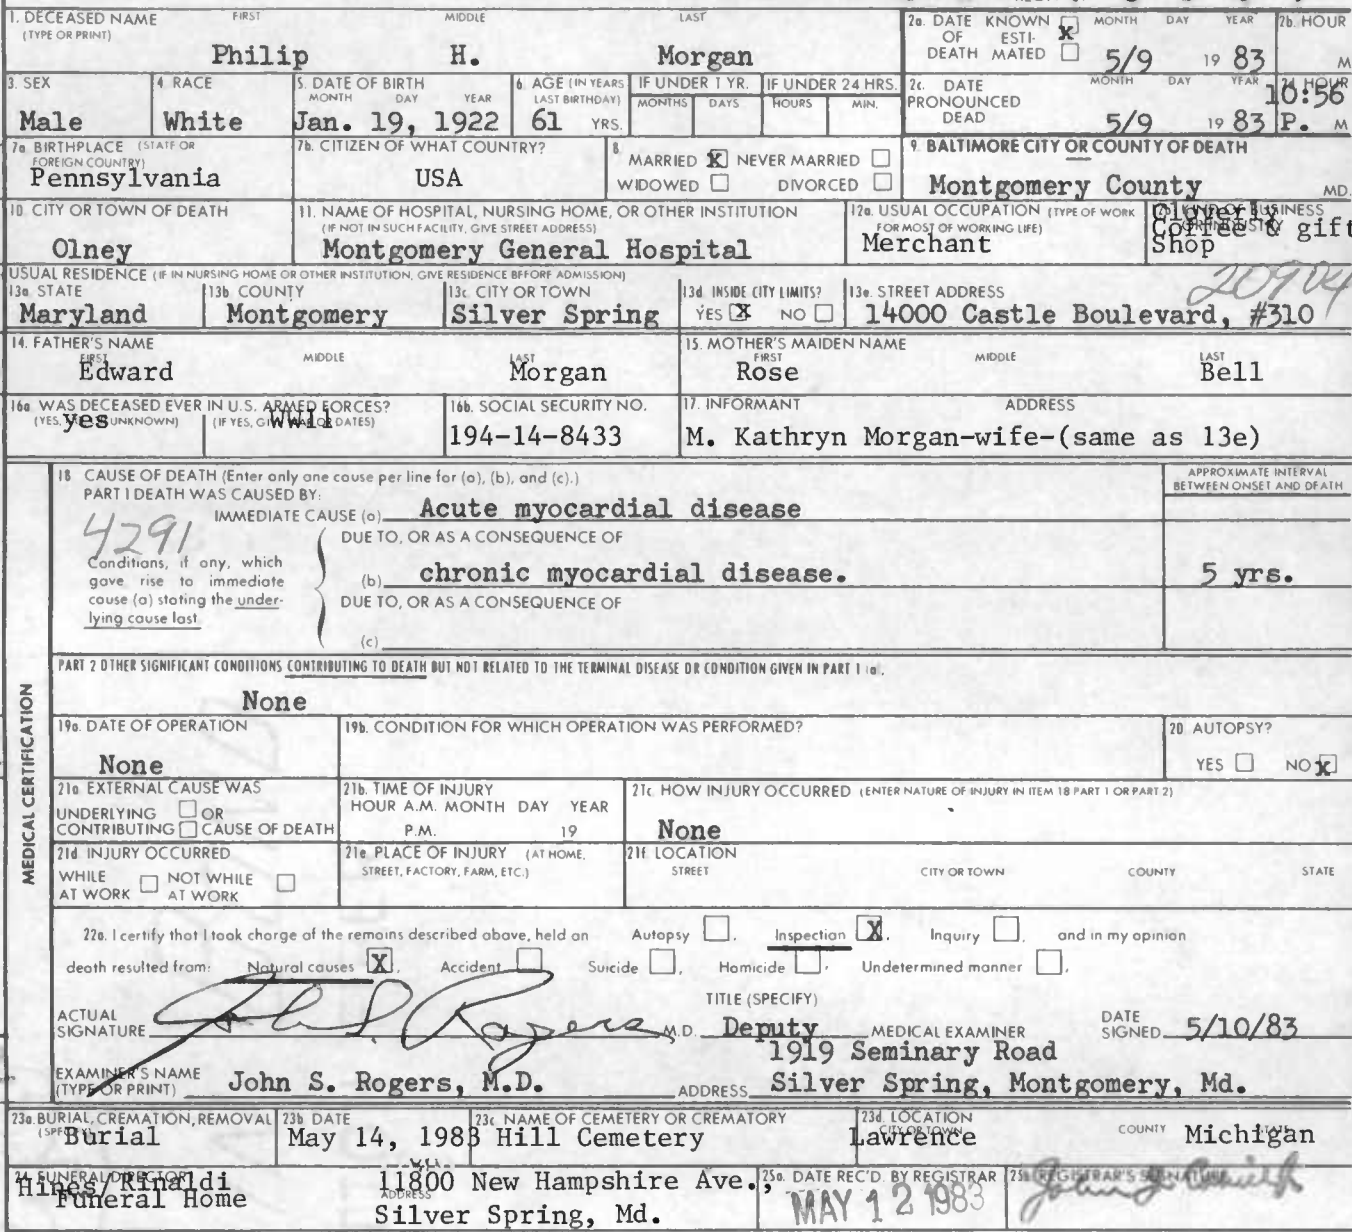 1. DECEASED NAME (TYPE OR PRINT) FIRST MIDDLE LAST
Philip H. Morgan
2a. DATE OF DEATH KNOWN ESTIMATED X MONTH DAY YEAR
5/9 19 83
2b. HOUR M
3. SEX
Male
4 RACE
White
5. DATE OF BIRTH MONTH DAY YEAR
Jan. 19, 1922
6. AGE (IN YEARS LAST BIRTHDAY)
61 YRS.
IF UNDER 1 YR. MONTHS DAYS
IF UNDER 24 HRS. HOURS MIN.
2c. DATE PRONOUNCED DEAD MONTH DAY YEAR
5/9 19 83
2d HOUR
10:56
P. M
7a BIRTHPLACE (STATE OR FOREIGN COUNTRY)
Pennsylvania
7b. CITIZEN OF WHAT COUNTRY?
USA
8 MARRIED X NEVER MARRIED
WIDOWED DIVORCED
9. BALTIMORE CITY OR COUNTY OF DEATH
Montgomery County MD.
10. CITY OR TOWN OF DEATH
Olney
11. NAME OF HOSPITAL, NURSING HOME, OR OTHER INSTITUTION
(IF NOT IN SUCH FACILITY, GIVE STREET ADDRESS)
Montgomery General Hospital
12a. USUAL OCCUPATION (TYPE OF WORK FOR MOST OF WORKING LIFE)
Merchant
12b. KIND OF BUSINESS OR INDUSTRY
Cloverly
Coffee & gift
Shop
USUAL RESIDENCE (IF IN NURSING HOME OR OTHER INSTITUTION, GIVE RESIDENCE BEFORE ADMISSION)
13a. STATE
Maryland
13b. COUNTY
Montgomery
13c. CITY OR TOWN
Silver Spring
13d. INSIDE CITY LIMITS?
YES X NO
13e. STREET ADDRESS
20904
14000 Castle Boulevard, #310
14. FATHER'S NAME FIRST MIDDLE LAST
Edward Morgan
15. MOTHER'S MAIDEN NAME FIRST MIDDLE LAST
Rose Bell
16a. WAS DECEASED EVER IN U.S. ARMED FORCES?
yes WW11
16b. SOCIAL SECURITY NO.
194-14-8433
17. INFORMANT ADDRESS
M. Kathryn Morgan-wife-(same as 13e)
MEDICAL CERTIFICATION
18 CAUSE OF DEATH (Enter only one cause per line for (a), (b), and (c).)
APPROXIMATE INTERVAL BETWEEN ONSET AND DEATH
PART I DEATH WAS CAUSED BY:
IMMEDIATE CAUSE (a) Acute myocardial disease
4291
DUE TO, OR AS A CONSEQUENCE OF
Conditions, if any, which
gave rise to immediate
cause (a) stating the under-
lying cause last
(b) chronic myocardial disease. 5 yrs.
DUE TO, OR AS A CONSEQUENCE OF
(c)
PART 2 OTHER SIGNIFICANT CONDITIONS CONTRIBUTING TO DEATH BUT NOT RELATED TO THE TERMINAL DISEASE OR CONDITION GIVEN IN PART 1 (a).
None
19a. DATE OF OPERATION
None
19b. CONDITION FOR WHICH OPERATION WAS PERFORMED?
20 AUTOPSY?
YES NO X
21a EXTERNAL CAUSE WAS
UNDERLYING OR
CONTRIBUTING CAUSE OF DEATH
21b. TIME OF INJURY
HOUR A.M. MONTH DAY YEAR
P.M. 19
21c. HOW INJURY OCCURRED (ENTER NATURE OF INJURY IN ITEM 18 PART 1 OR PART 2)
None
21d INJURY OCCURRED
WHILE AT WORK NOT WHILE AT WORK
21e PLACE OF INJURY (AT HOME, STREET, FACTORY, FARM, ETC.)
21f. LOCATION
STREET CITY OR TOWN COUNTY STATE
22a. I certify that I took charge of the remains described above, held an Autopsy , Inspection X , Inquiry , and in my opinion
death resulted from: Natural causes X , Accident Suicide , Homicide , Undetermined manner .
ACTUAL SIGNATURE John S. Rogers M.D.
TITLE (SPECIFY)
Deputy MEDICAL EXAMINER
DATE SIGNED 5/10/83
EXAMINER'S NAME (TYPE OR PRINT) John S. Rogers, M.D.
1919 Seminary Road
ADDRESS Silver Spring, Montgomery, Md.
23a. BURIAL, CREMATION, REMOVAL
Burial
23b DATE
May 14, 1983
23c NAME OF CEMETERY OR CREMATORY
Hill Cemetery
23d. LOCATION CITY OR TOWN COUNTY STATE
Lawrence Michigan
24 FUNERAL DIRECTOR
Hines/Rinaldi
Funeral Home
11800 New Hampshire Ave.,
ADDRESS
Silver Spring, Md.
25a. DATE REC'D. BY REGISTRAR
MAY 12 1983
REGISTRAR'S SIGNATURE